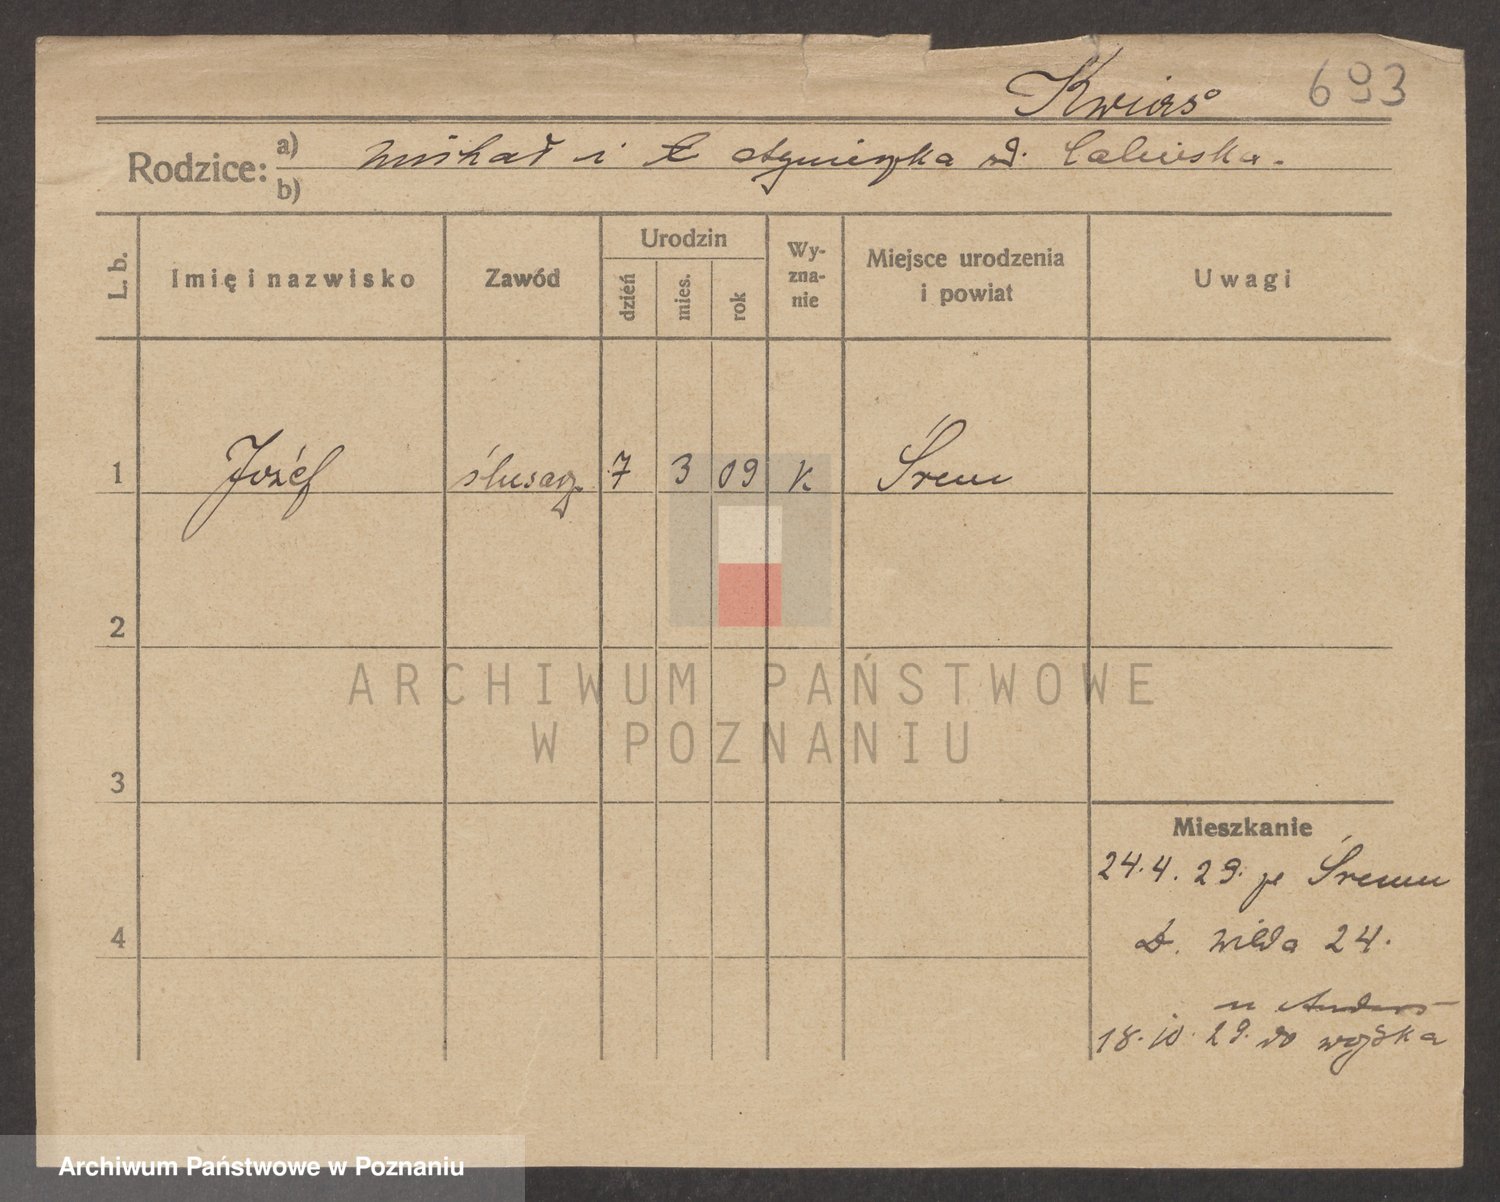 693
Rodzice: a) Michał i Agnieszka
b)
L. b.
Imię i nazwisko
Zawód
Urodzin
dzień
mies.
rok
Wy-
zna-
nie
Miejsce urodzenia
i powiat
Uwagi
1 Józef ślusarz 7 3 09 k Śrem
2
3
4
Mieszkanie
24.4.29. ze Śremu
D. Wilda 24.
u
18.10.29. do wojska
ARCHIWUM PAŃSTWOWE
W POZNANIU
Archiwum Państwowe w Poznaniu